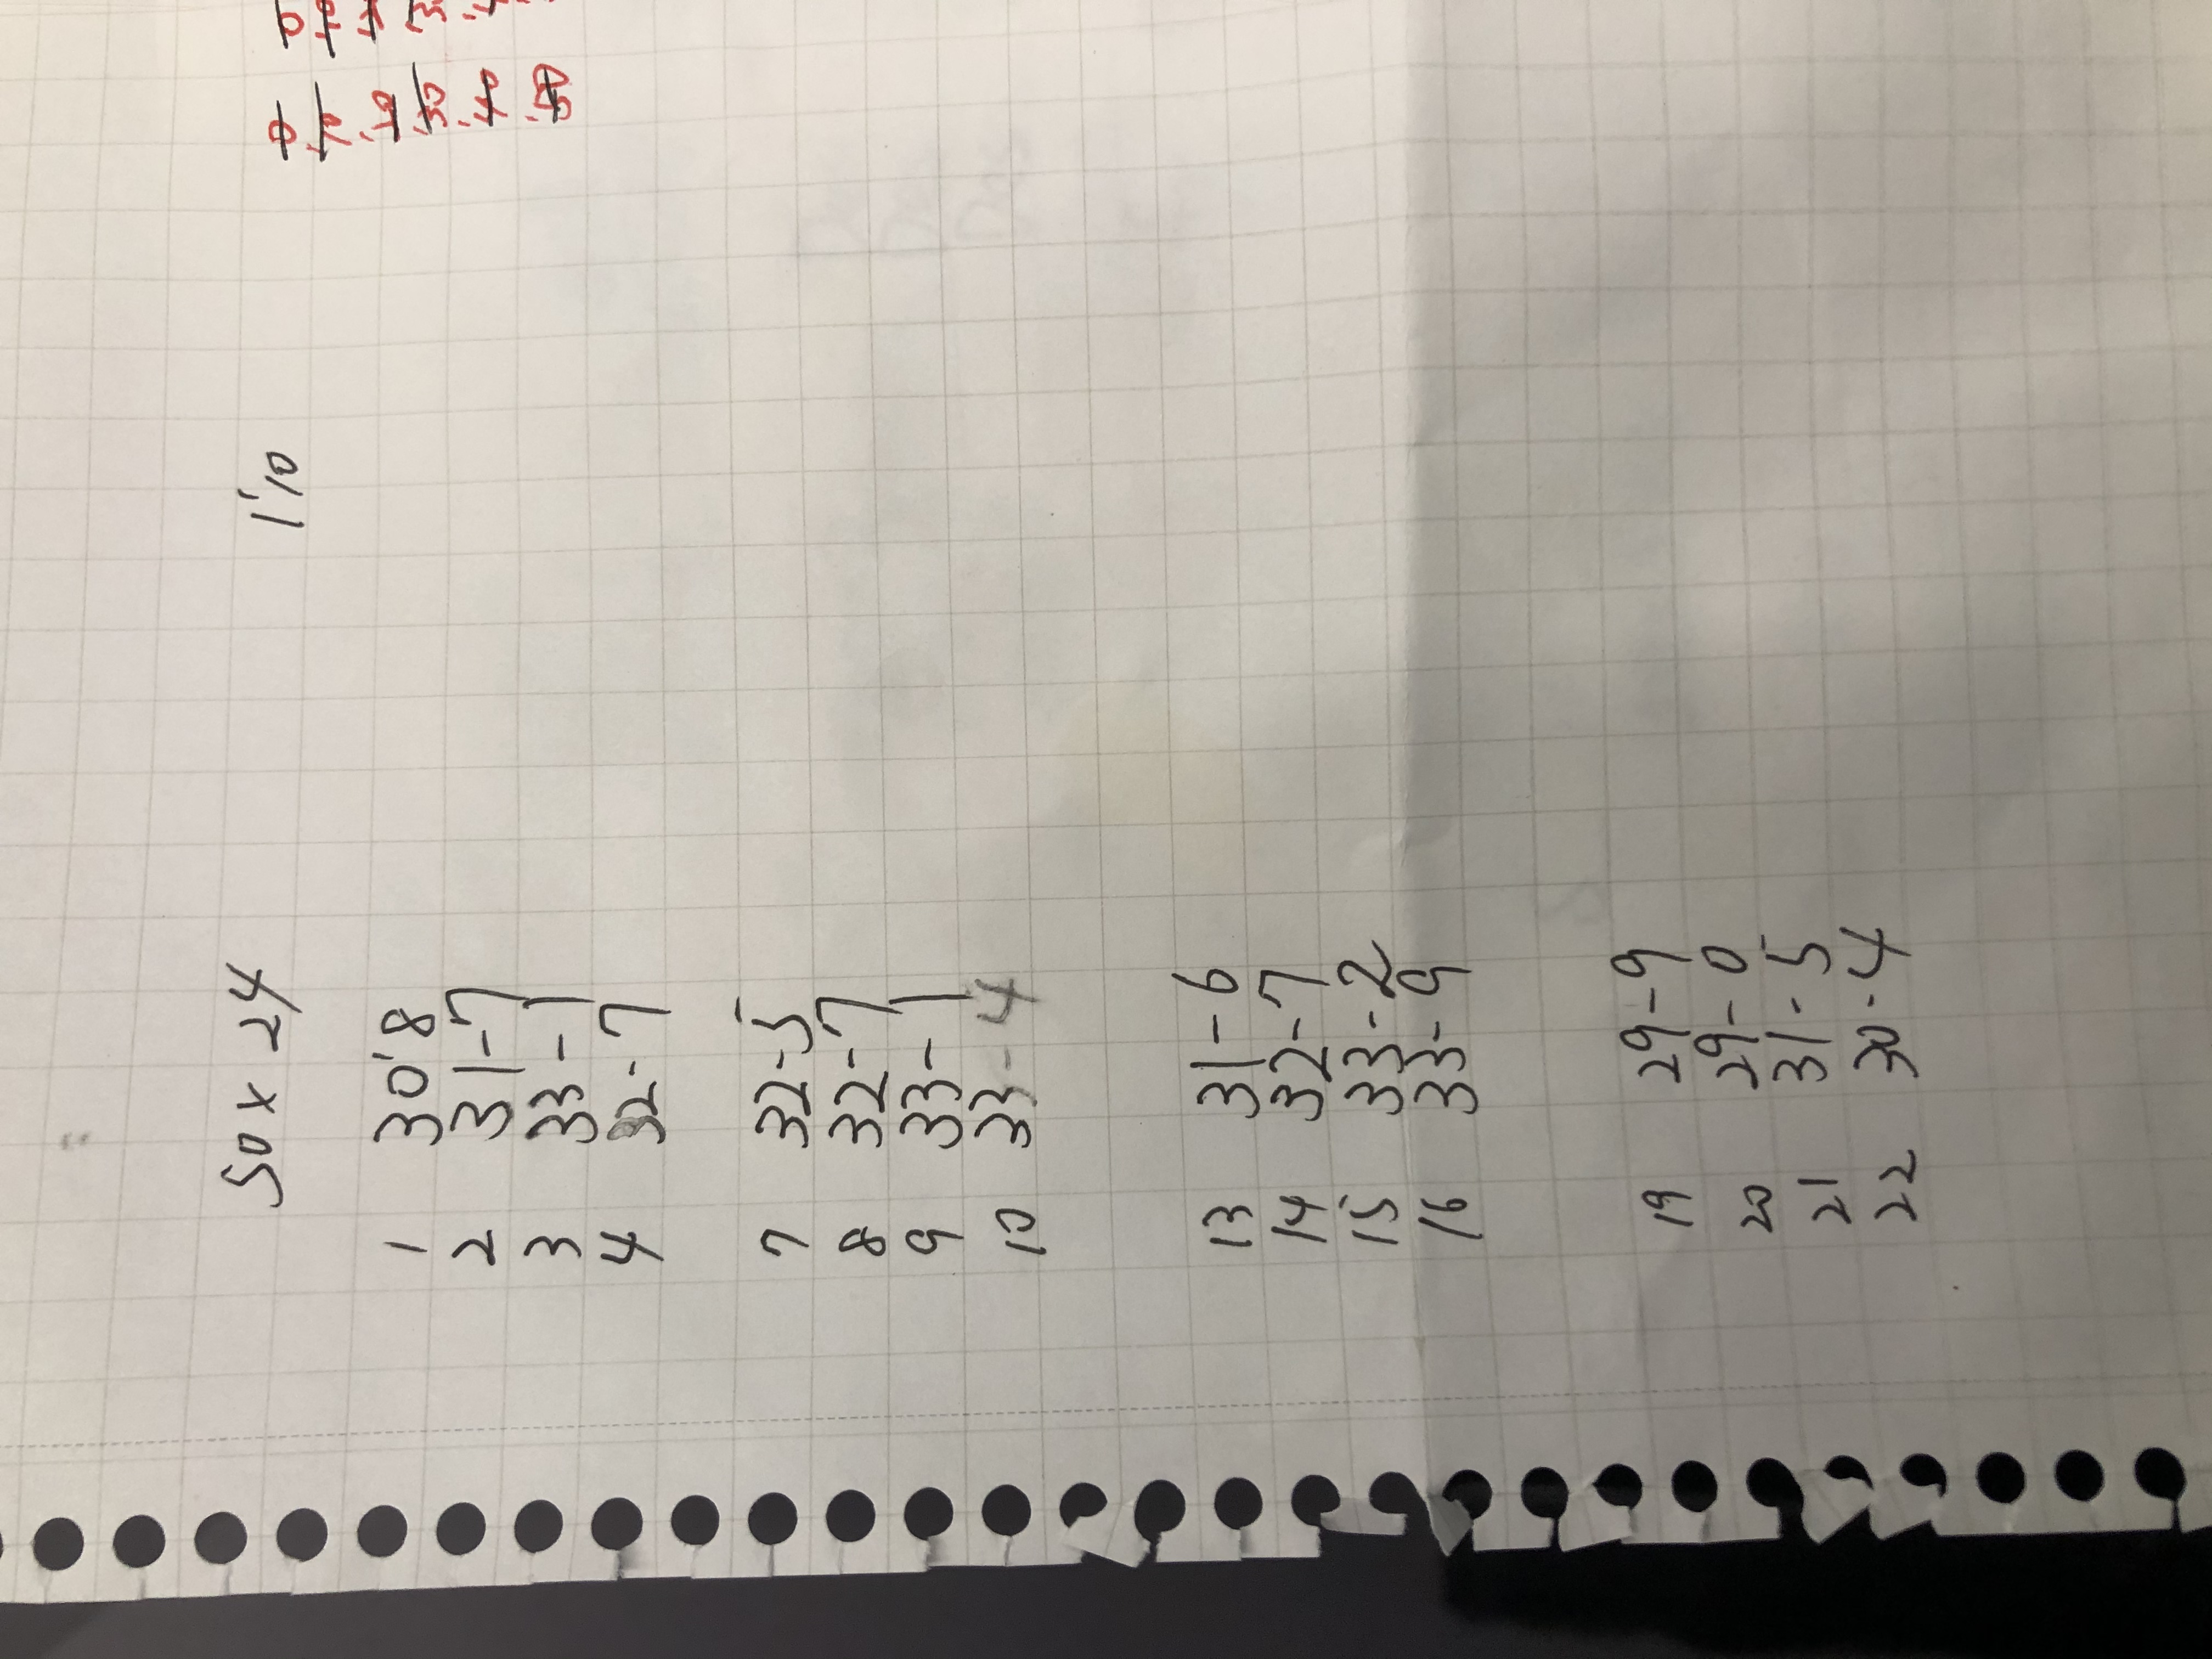 50 x 24 1'10
1 30'8
2 31-7
3 33-1
4 32-7
7 32-5
8 32-7
9 33-1
10 33-4
13 31-6
14 32-7
15 33-2
16 33-9
19 29-9
20 29-0
21 31-5
22 30-4